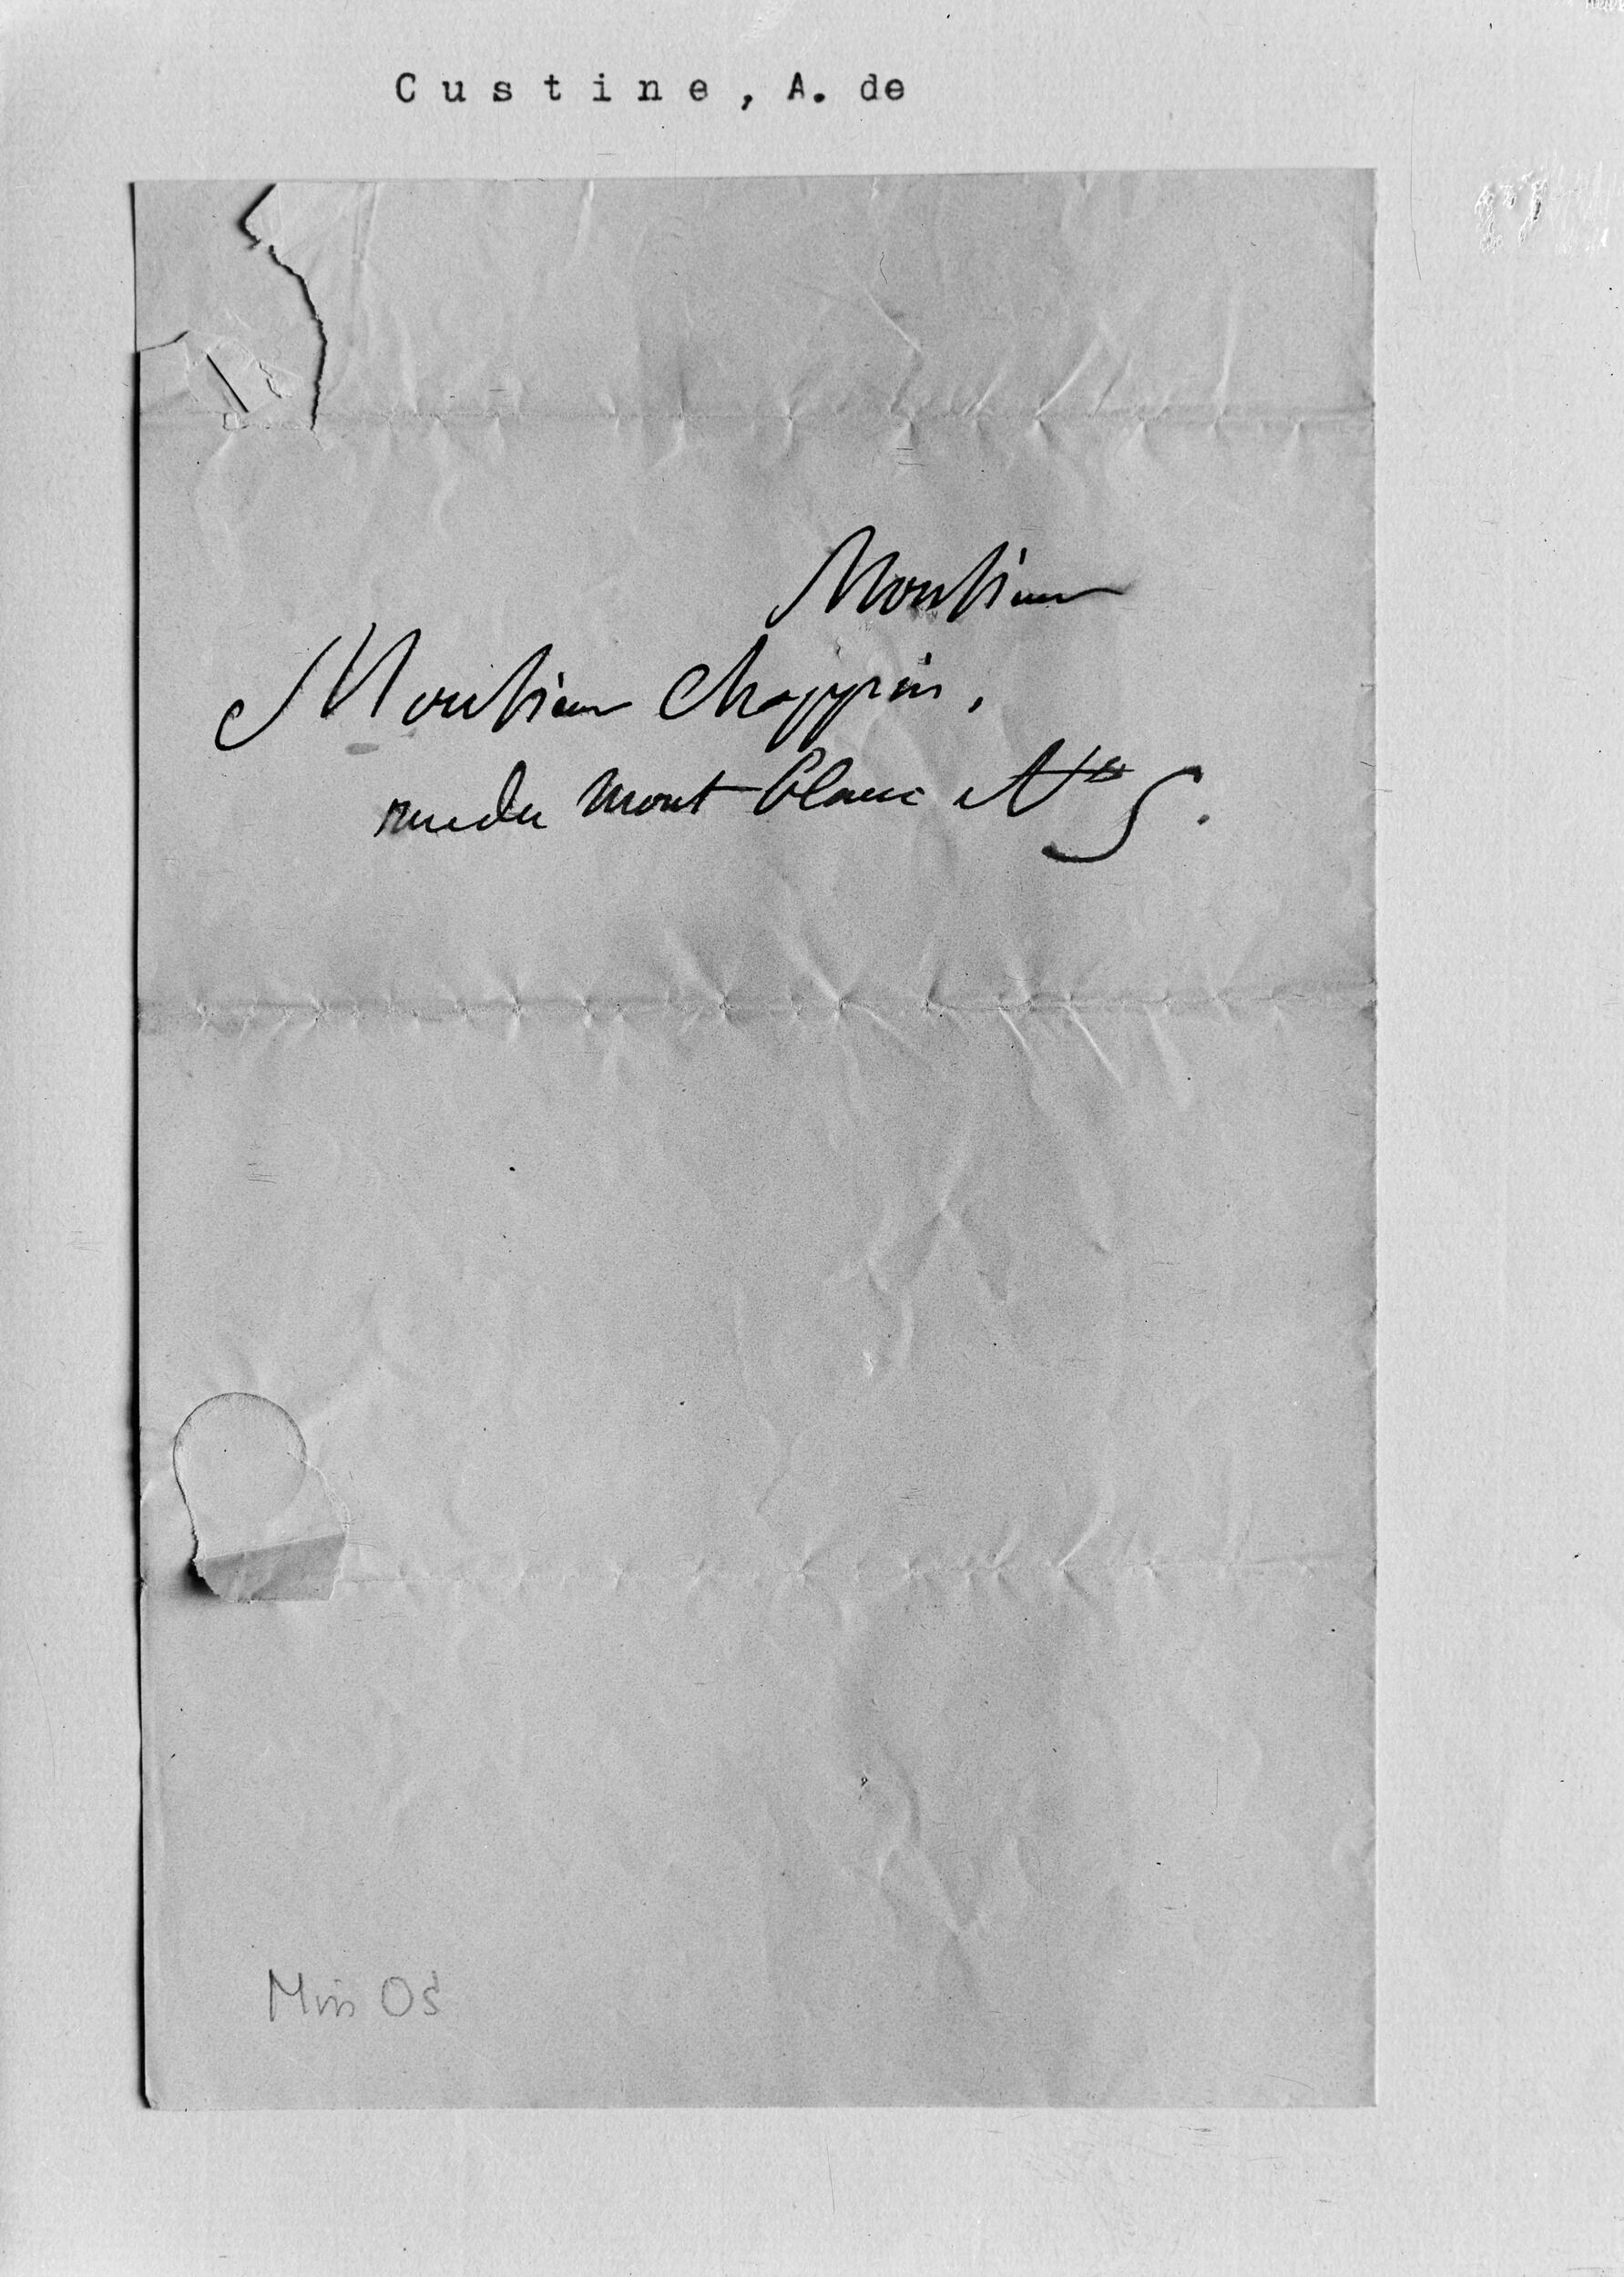 Custine, A. de
Monsieur
Monsieur Chappin,
rue du Mont blanc No 5.